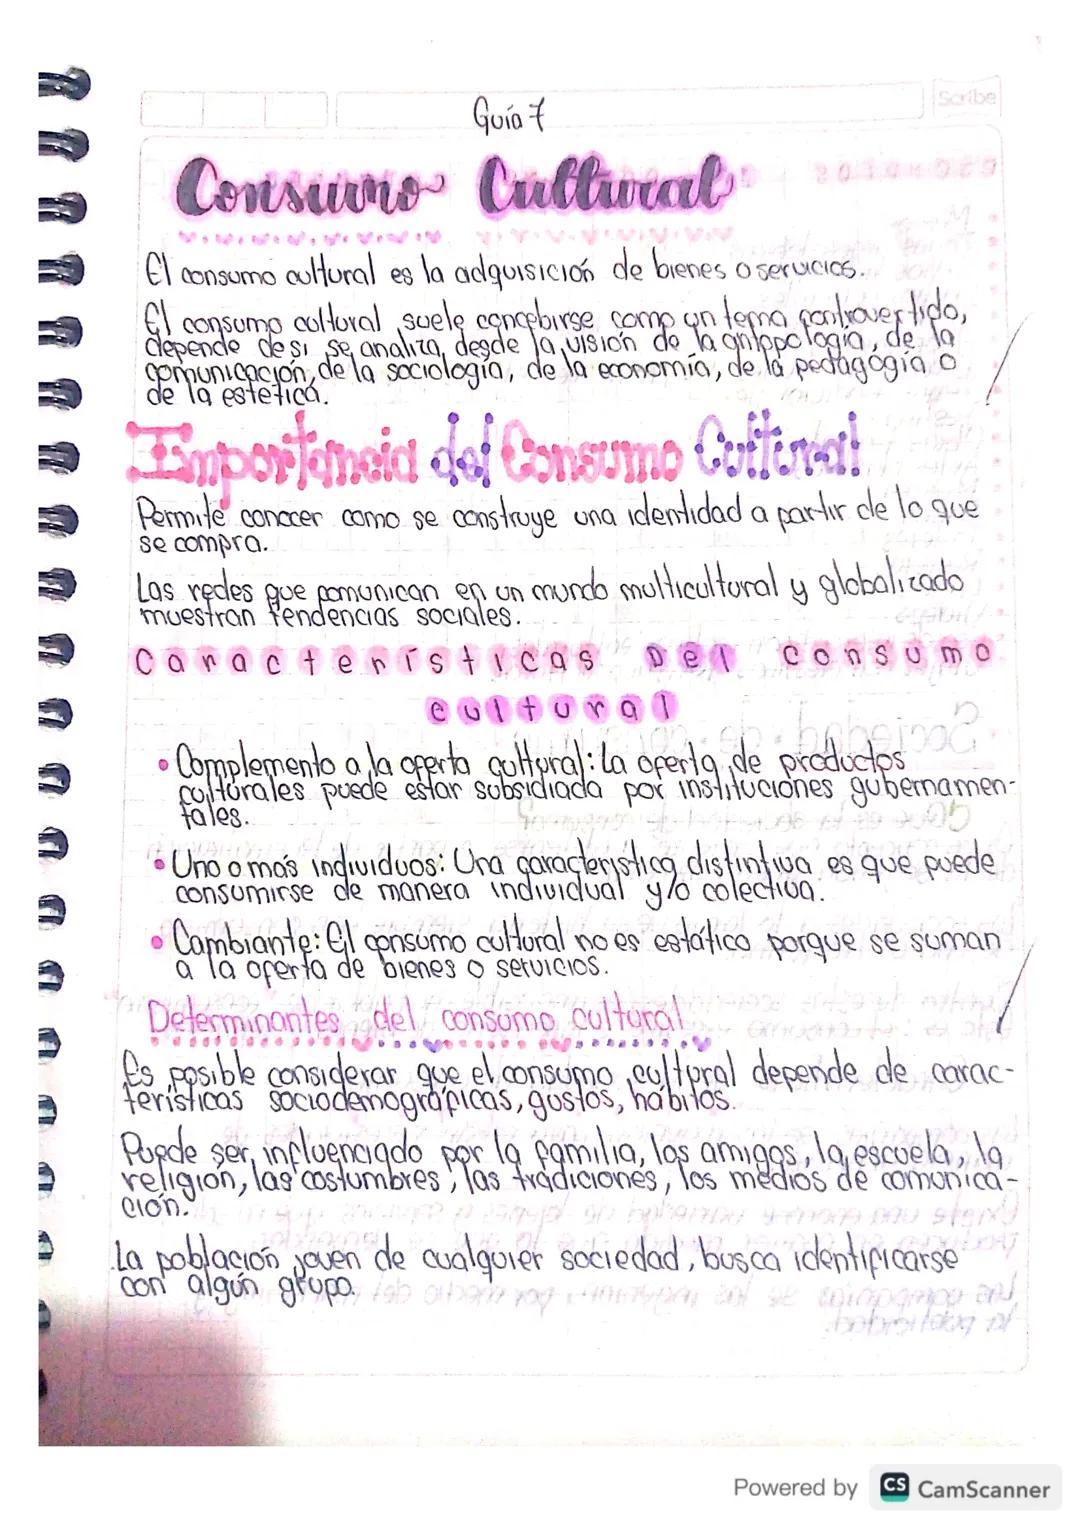 Scribe
Guía 7
Consumo Cultural
El consumo cultural es la adquisición de bienes o servicios.
El consumo cultural suele concebirse como un tema controvertido,
depende de si se analiza desde la visión de la antopología, de la
comunicación, de la sociología, de la economía, de la pedagogía o
de la estética.
Importancia del Consumo Cultural
Permite conocer como se construye una identidad a partir de lo que
se compra.
Las redes que comunican en un mundo multicultural y globalizado
muestran tendencias sociales.
Características Del consumo
cultural
• Complemento a la oferta cultural: La oferta de productos
culturales puede estar subsidiada por instituciones gubernamen-
tales.
• Uno o más individuos: Una característica distintiva es que puede
consumirse de manera individual y/o colectiva.
• Cambiante: El consumo cultural no es estático porque se suman
a la oferta de bienes o servicios.
Determinantes del consumo cultural
Es posible considerar que el consumo cultural depende de carac-
terísticas sociodemográficas, gustos, hábitos.
Puede ser influenciado por la familia, los amigos, la escuela, la
religión, las costumbres, las tradiciones, los medios de comunica-
ción.
La población joven de cualquier sociedad, busca identificarse
con algún grupo.
Powered by CS CamScanner